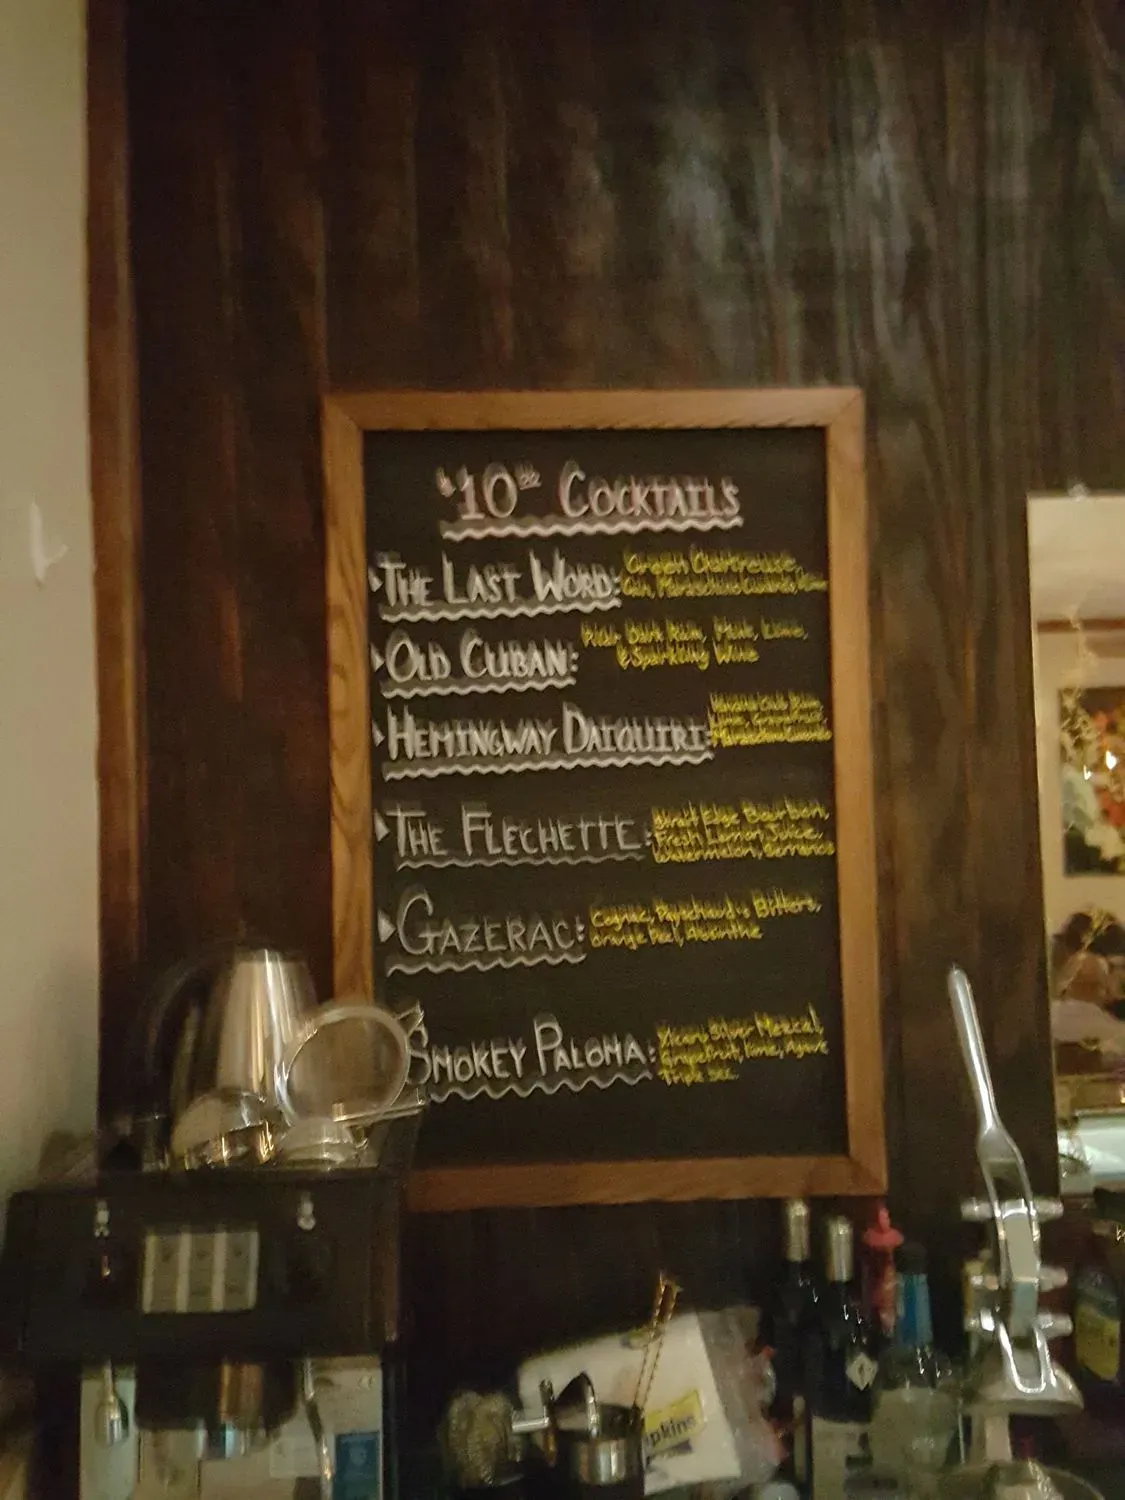 $10.00 COCKTAILS
THE LAST WORD: Green Chartreuse,
Gin, Maraschino
OLD CUBAN: Dark Rum, Mint, Lime,
& Sparkling Wine
HEMINGWAY DAIQUIRI: Havana Club Rum,
Lime, Grapefruit,
Maraschino
THE FLECHETTE: Bourbon,
Fresh Lemon Juice,
Watermelon,
GAZERAC: Cognac, Peychaud's Bitters,
Orange Peel, Absinthe
SMOKEY PALOMA: Silver Mezcal,
Grapefruit, Lime, Agave
Triple Sec
pkins